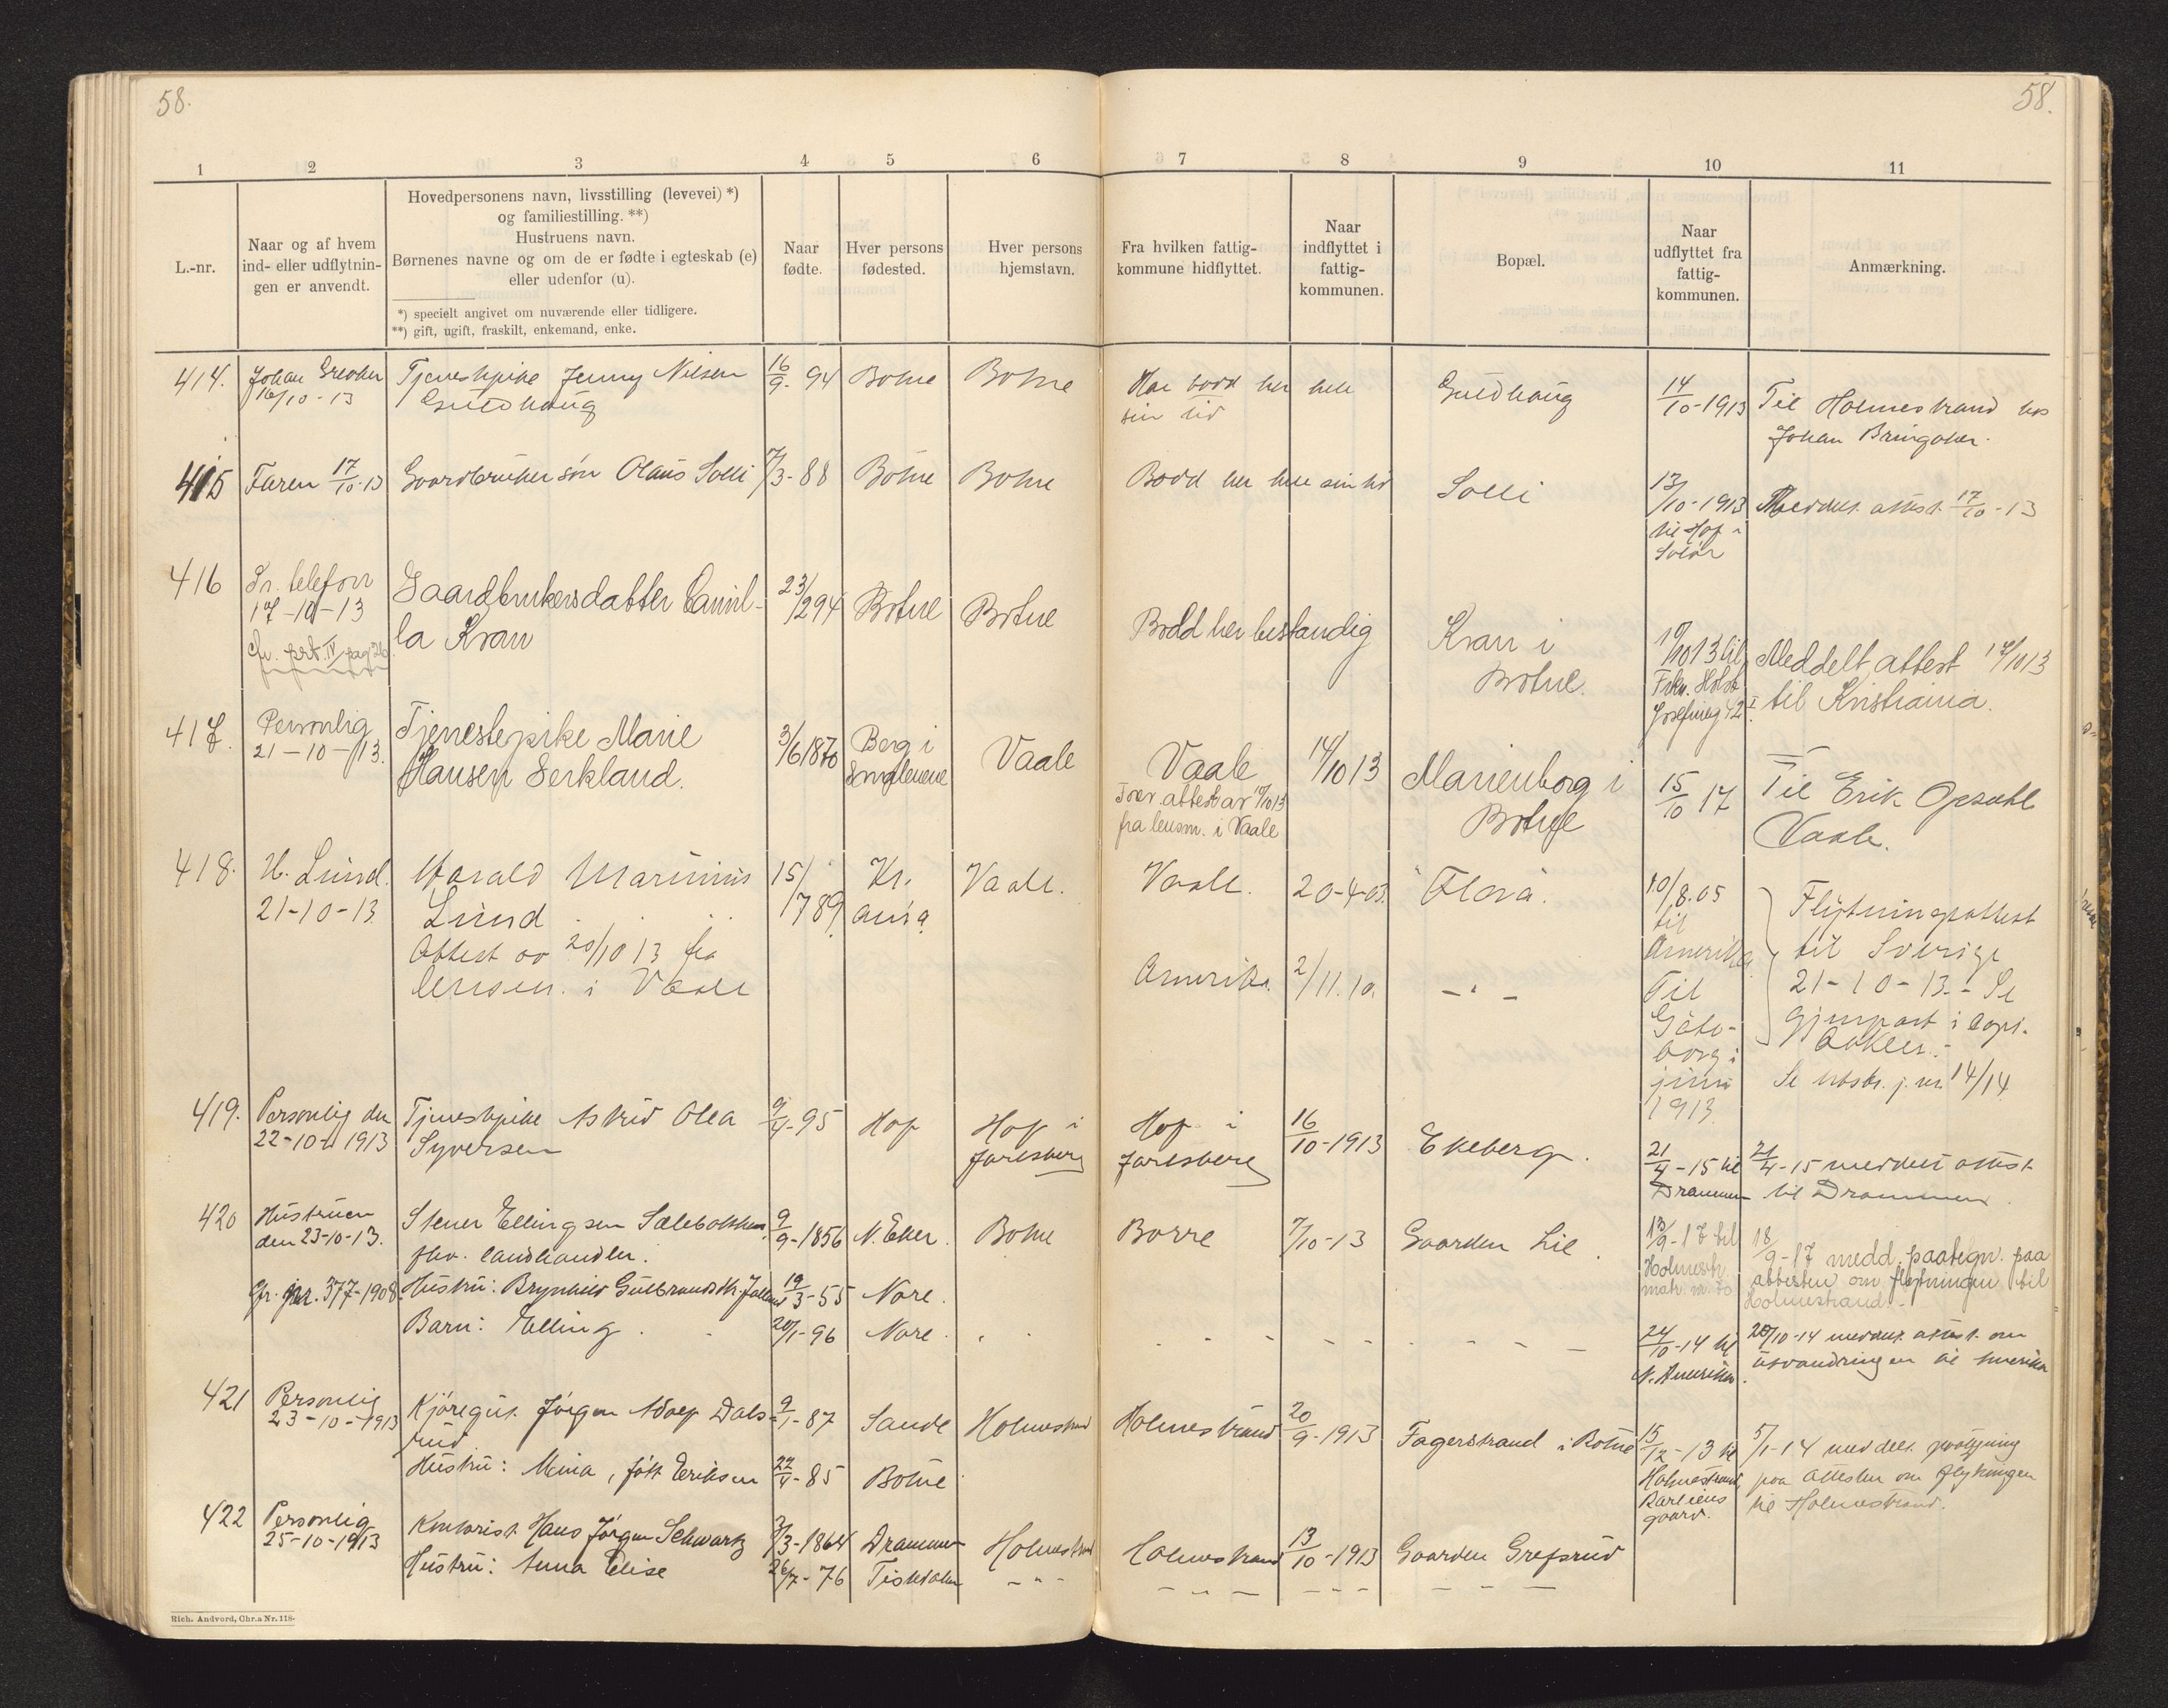 58.
58.
1 2 3 4 5 6 7 8 9 10 11
L.-nr.
Naar og af hvem
ind- eller udflytnin-
gen er anvendt.
Hovedpersonens navn, livsstilling (levevei) *)
og familiestilling. **)
Hustruens navn.
Børnenes navne og om de er fødte i egteskab (e)
eller udenfor (u).
*) specielt angivet om nuværende eller tidligere.
**) gift, ugift, fraskilt, enkemand, enke.
Naar
fødte.
Hver persons
fødested.
Hver persons
hjemstavn.
Fra hvilken fattig-
kommune hidflyttet.
Naar
indflyttet i
fattig-
kommunen.
Bopæl.
Naar
udflyttet fra
fattig-
kommunen.
Anmærkning.
414.
Johan
16/10-13
Tjenestepike Jenny Nilsen
Guldhaug
16/9-94
Botne
Botne
Har bodd her hele
sin tid
Guldhaug
14/10-1913
Til Holmestrand hos
Johan Bringaker.
415
Faren 17/10-13
Gaardbruker søn Olaus Solli
7/3-88
Botne
Botne
Bodd her hele sin tid
Solli
13/10-1913
til Hof i
Solør
Meddelt attest 17/10-13
416
Pr. telefon
17-10-13
cfr. prt. IV pag 26.
Gaardbrukersdatter Camil-
la Kran
23/294
Botne
Botne
Bodd her bestandig
Kran i
Botne.
19/1013 til
Frkn. Holst
Josefineg 42 I.
Meddelt attest 17/1013
til Kristiania.
417.
Personlig
21-10-13.
Tjenestepike Marie
Hansen Serkland.
3/61870
Berg i
Smålenene
Vaale
Vaale
Forev. attest av 17/1013
fra lensm. i Vaale
14/1013
Marienborg i
Botne
15/10 17
Til Erik Gjesdahl
Vaale.
418.
H. Lund.
21-10-13.
Harald Marinius
Lund
Attest av 20/10 13 fra
lensm. i Vaale
15/789
Kr.
ania
Vaale.
Vaale.
20-4-03.
Flora.
10/8.05
til
Amerika.
Amerika.
2/11.10.
- " -
Til
Göte-
borg i
juni
1913.
Flytningsattest
til Sverige
21-10-13. - Se
gjenpart i Copi.
bokken. -
Se utskr. j. nr. 14/14
419.
Personlig den
22-10-1913
Tjenestepike Astrid Olea
Syversen
9/4-95
Hof
Hof i
Jarlsberg
Hof i
Jarlsberg
16/10-1913
Ekeberg.
21/4-15 til
Drammen
21/4-15 meddelt attest
til Drammen.
420
Hustruen
den 23-10-13.
Stener Ellingsen
fhv. landhandler.
9/9-1856
N. Eker.
Botne
Borre
7/10-13
Gaarden Lie.
13/9-17 til
Holmestr.
18/9-17 medd. paategn. paa
attesten om flytningen til
Holmestrand. -
Cfr. jnr. 377-1908.
Hustru: Brynhild Gulbrandsdtr.
19/3-55
Nore.
Barn: Elling.
20/1-96
Nore.
24/10-14 til
N. Amerika.
20/10-14 meddelt attest om
utvandringen til Amerika
421
Personlig
23-10-1913
Kjøregut Jørgen Adolf Dals-
rud
9/1-87
Sande
Holmestrand
Holmestrand
20/9-1913
Fagerstrand i Botne
15/12-13 til
Holmestrand,
Karliens
gaard.
5/1-14 meddelt paategning
paa attesten om flytningen
til Holmestrand.
Hustru: Mina, født Eriksen
22/4-85
Botne
422
Personlig
25-10-1913
Kontorist Hans Jørgen Schwartz
3/3-1864
Drammen
Holmestrand
Holmestrand
13/10-1913
Gaarden Grefsrud
Hustru: Anna Elise
26/7-76
- " -
- " -
- " -
- - -
Rich. Andvord, Chr.a Nr. 118.